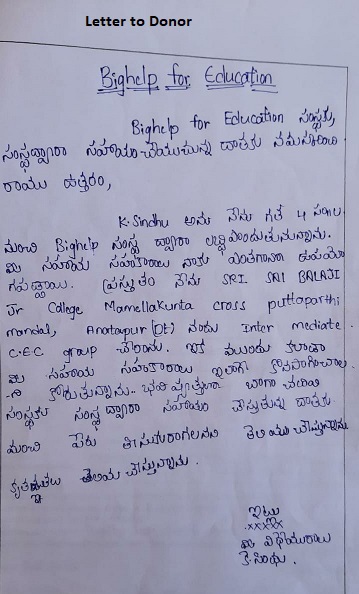 Letter to Donor
Bighelp for Education
Bighelp for Education సంస్థకు,
సంస్థద్వారా సహాయం చేయుచున్న దాతకు నమస్కరించి
రాయు ఉత్తరం,
K. Sindhu అను నేను గత 4 సం॥ల
నుంచి Bighelp సంస్థ ద్వారా లబ్ధిపొందుతున్నాను.
మీ సహాయ సహకారాలు నాకు ఎంతగానో ఉపయో
గపడ్డాయి. ప్రస్తుతం నేను SRI. SAI BALAJI
Jr College Mamellakunta cross puttaparthi
mandal, Anatapur (Dt) నందు Inter mediate.
C.E.C group చేరాను. ఇక ముందు కూడా
మీ సహాయ సహకారాలు ఇలాగే కొనసాగించాల
-ని కోరుతున్నాను.. బాగా చదివి
సంస్థకు సంస్థ ద్వారా సహాయం చేస్తున్న దాతకు
మంచి పేరు తీసుకురాగలనని తెలియచేస్తున్నాను
కృతజ్ఞతలు తెలియచేస్తున్నాను.
ఇట్లు
.xxxxx
మీ విధేయురాలు
కె.సింధు.